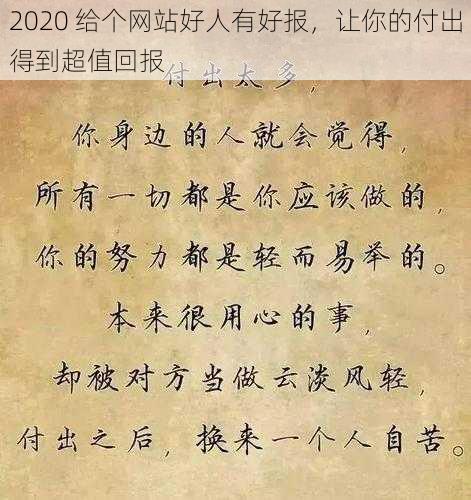 2020 给个网站好人有好报，让你的付出
得到超值回报
付出太多，
你身边的人就会觉得，
所有一切都是你应该做的，
你的努力都是轻而易举的。
本来很用心的事，
却被对方当做云淡风轻，
付出之后，换来一个人自苦。